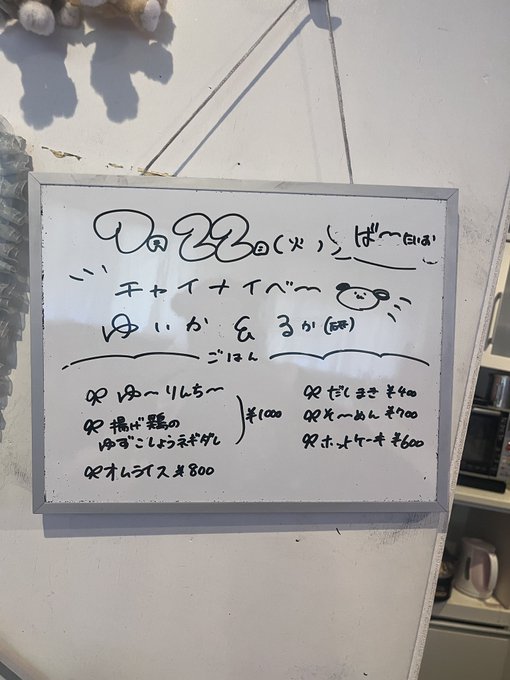 7月22日(火)
チャイナイベ〜
ゆいか & るか(研)
ごはん
ゆ〜りんち〜
揚げ鶏の
ゆずこしょうネギダレ
¥1000
オムライス ¥800
だしまき ¥400
そ〜めん ¥700
ホットケーキ ¥600